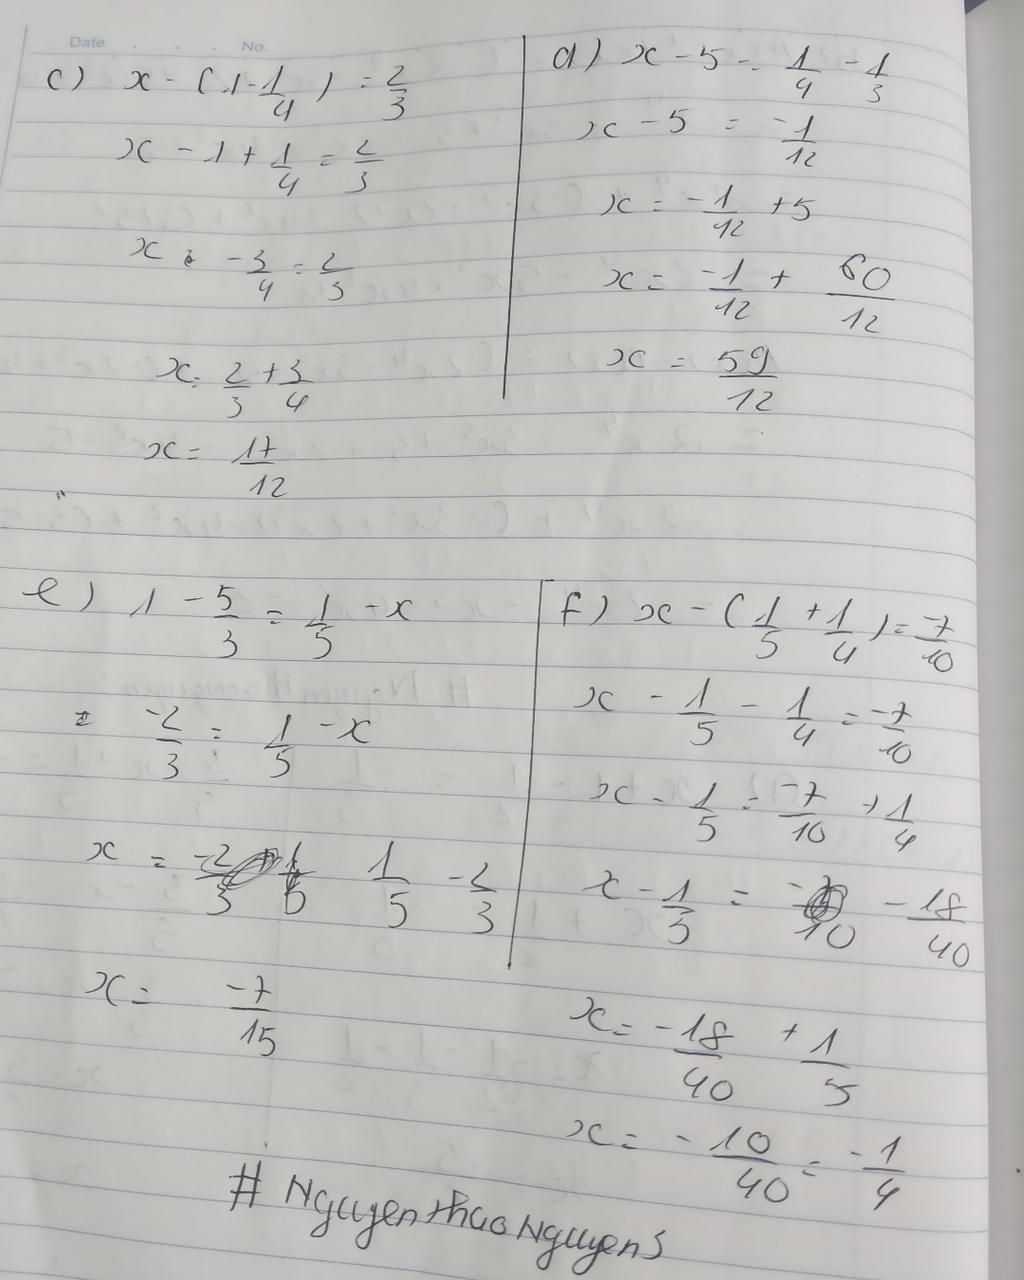 Date . . . No.
c) x - (1 - 1/4) = 2/3
x - 1 + 1/4 = 2/3
x - 3/4 = 2/3
x = 2/3 + 3/4
x = 17/12
d) x - 5 = 1/4 - 1/3
x - 5 = -1/12
x = -1/12 + 5
x = -1/12 + 60/12
x = 59/12
e) 1 - 5/3 = 1/5 - x
= -2/3 = 1/5 - x
x = 1/5 - 2/3
x = -7/15
f) x - (1/5 + 1/4) = -7/10
x - 1/5 - 1/4 = -7/10
x - 1/5 = -7/10 + 1/4
x - 1/5 = - 18/40
x = -18/40 + 1/5
x = -10/40 = -1/4
# NguyenthaoNguyenS